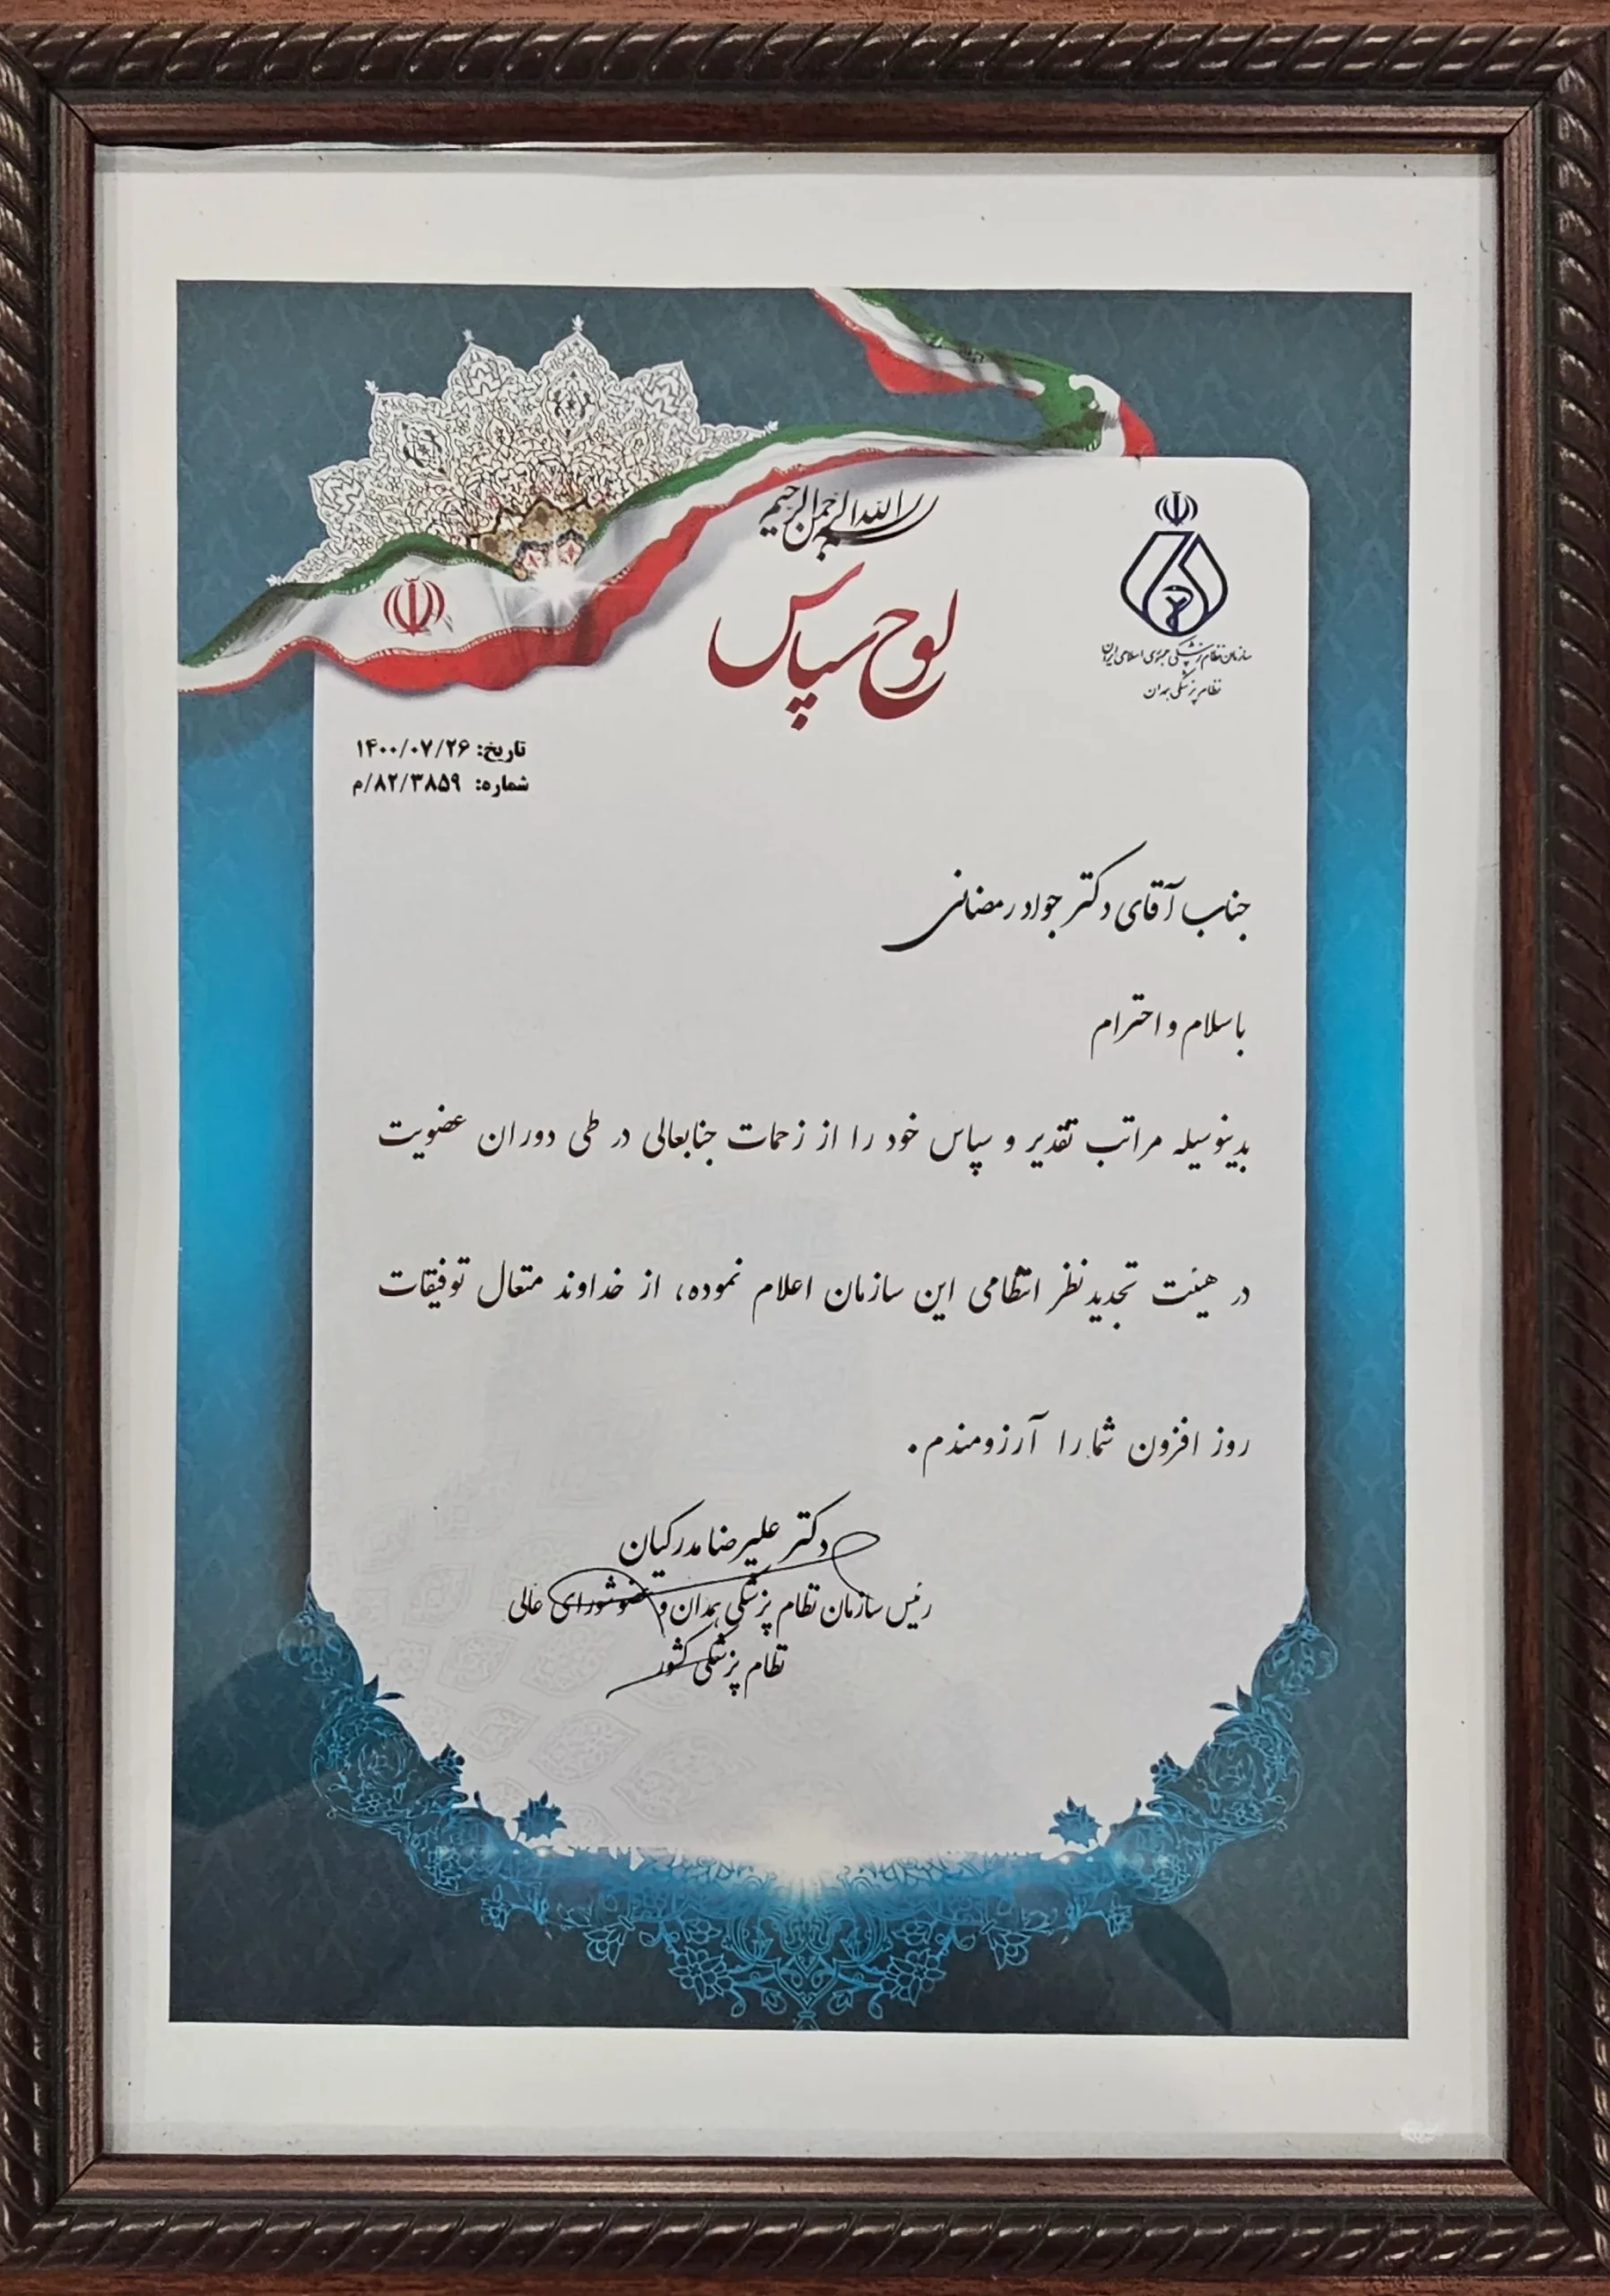 بسم الله الرحمن الرحیم
لوح سپاس
سازمان نظام پزشکی جمهوری اسلامی ایران
نظام پزشکی همدان
تاریخ: ۱۴۰۰/۰۷/۲۶
شماره: ۸۲/۳۸۵۹/م
جناب آقای دکتر جواد رمضانی
با سلام و احترام
بدینوسیله مراتب تقدیر و سپاس خود را از زحمات جنابعالی در طی دوران عضویت
در هیئت تجدیدنظر انتظامی این سازمان اعلام نموده، از خداوند متعال توفیقات
روز افزون شما را آرزومندم.
دکتر علیرضا مدرکیان
رئیس سازمان نظام پزشکی همدان و عضو شورای عالی
نظام پزشکی کشور